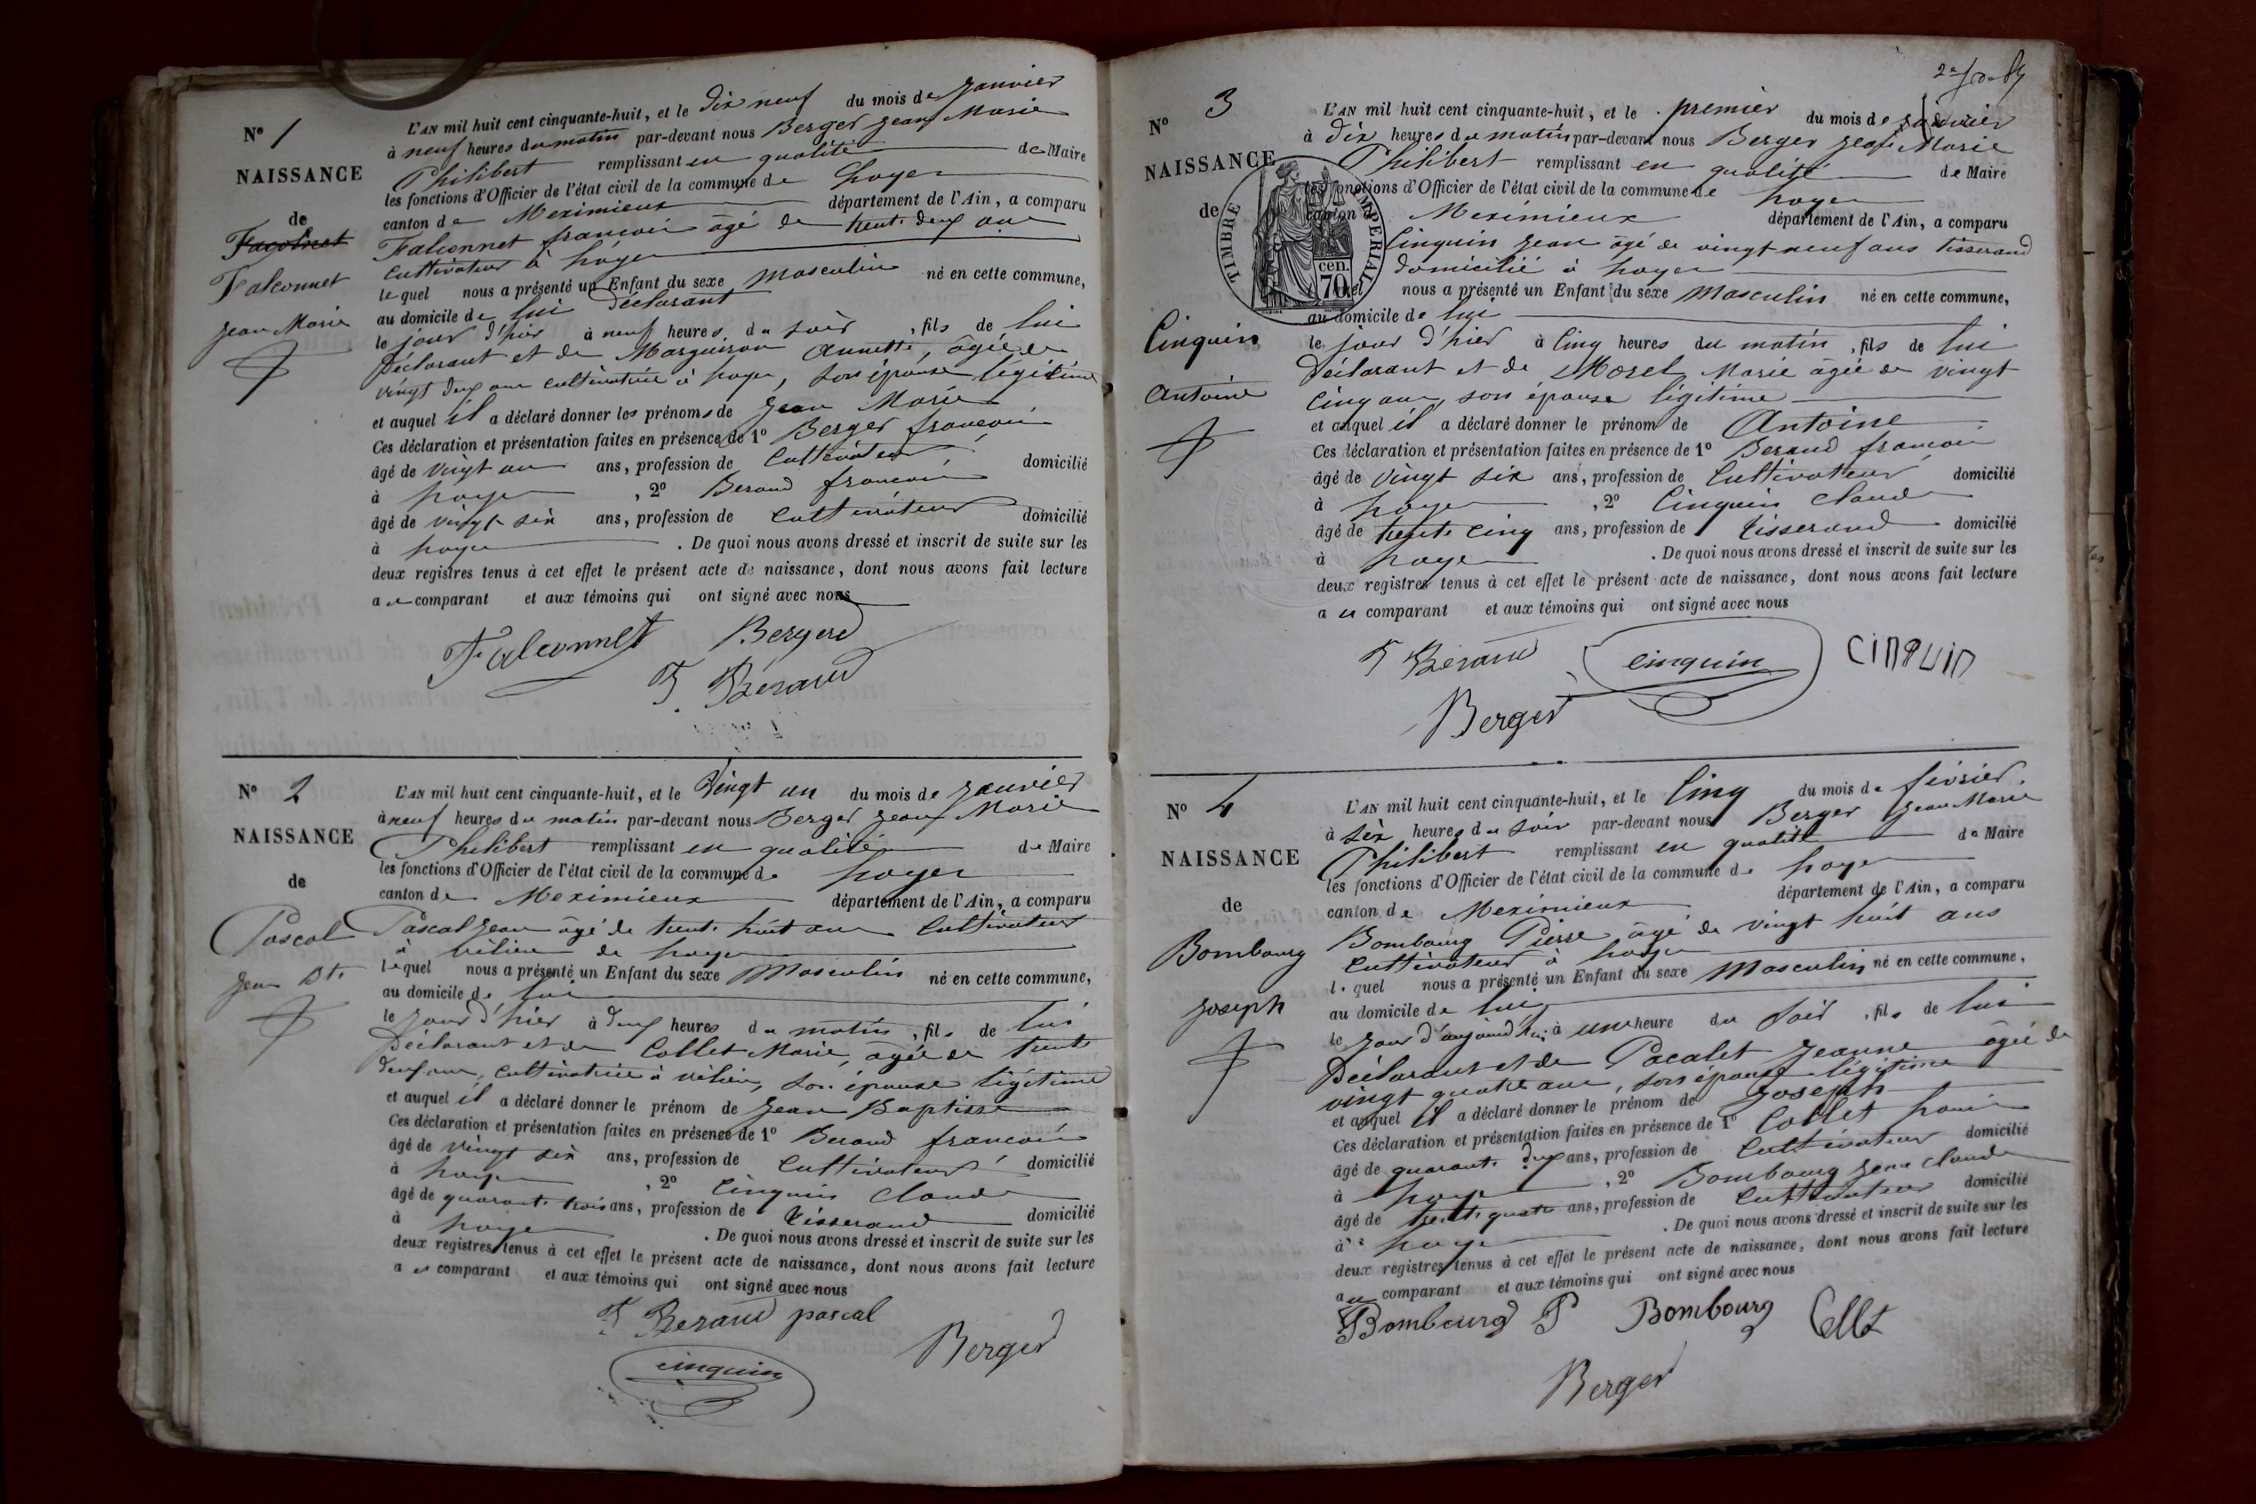 N° 1
NAISSANCE
de
Facolnet
Falconnet
Jean Marie
L'AN mil huit cent cinquante-huit, et le dix neuf du mois de Janvier
à neuf heures du matin par-devant nous Berger Jean Marie
Philibert remplissant en qualité de Maire
les fonctions d'Officier de l'état civil de la commune de
canton de Meximieux département de l'Ain, a comparu
Falconnet francois âgé de trente deux ans
Cultivateur à
lequel nous a présenté un Enfant du sexe Masculin né en cette commune,
au domicile de lui Déclarant
le jour d'hier à neuf heures du soir, fils de lui
Déclarant et de Annette, âgée de
vingt deux ans cultivatrice à , son épouse légitime
et auquel il a déclaré donner les prénoms de Jean Marie
Ces déclaration et présentation faites en présence de 1° Berger francois
âgé de vingt un ans, profession de Cultivateur domicilié
à , 2° Beraud francois
âgé de vingt six ans, profession de Cultivateur domicilié
à . De quoi nous avons dressé et inscrit de suite sur les
deux registres tenus à cet effet le présent acte de naissance, dont nous avons fait lecture
au comparant et aux témoins qui ont signé avec nous
Falconnet Berger
F. Béraud
N° 2
NAISSANCE
de
Pascal
Jean Bte
L'AN mil huit cent cinquante-huit, et le Vingt un du mois de Janvier
à neuf heures du matin par-devant nous Berger Jean Marie
Philibert remplissant en qualité de Maire
les fonctions d'Officier de l'état civil de la commune de
canton de Meximieux département de l'Ain, a comparu
Pascal Jean âgé de trente huit ans Cultivateur
à de
lequel nous a présenté un Enfant du sexe Masculin né en cette commune,
au domicile de lui
le jour d'hier à deux heures du matin, fils de lui
Déclarant et de Collet Marie, âgée de trente
ans, cultivatrice à , son épouse légitime
et auquel il a déclaré donner le prénom de Jean Baptiste
Ces déclaration et présentation faites en présence de 1° Beraud francois
âgé de vingt six ans, profession de Cultivateur domicilié
à , 2° Cinquin Claude
âgé de quarante trois ans, profession de Tisserand domicilié
à . De quoi nous avons dressé et inscrit de suite sur les
deux registres tenus à cet effet le présent acte de naissance, dont nous avons fait lecture
au comparant et aux témoins qui ont signé avec nous
F. Beraud pascal
cinquin Berger
N° 3
NAISSANCE
de
Cinquin
Antoine
TIMBRE IMPERIAL
cen.
70
L'AN mil huit cent cinquante-huit, et le premier du mois de
à dix heures du matin par-devant nous Berger Jean Marie
Philibert remplissant en qualité de Maire
les fonctions d'Officier de l'état civil de la commune de
canton Meximieux département de l'Ain, a comparu
Cinquin Jean âgé de vingt neuf ans tisserand
domicilié à
lequel nous a présenté un Enfant du sexe Masculin né en cette commune,
au domicile de lui
le jour d'hier à Cinq heures du matin, fils de lui
Déclarant et de Morel Marie âgée de vingt
Cinq ans, son épouse légitime
et auquel il a déclaré donner le prénom de Antoine
Ces déclaration et présentation faites en présence de 1° Beraud francois
âgé de vingt six ans, profession de Cultivateur domicilié
à , 2° Cinquin Claude
âgé de trente cinq ans, profession de Tisserand domicilié
à . De quoi nous avons dressé et inscrit de suite sur les
deux registres tenus à cet effet le présent acte de naissance, dont nous avons fait lecture
au comparant et aux témoins qui ont signé avec nous
F Béraud cinquin CINQUIN
Berger
N° 4
NAISSANCE
de
Bombourg
Joseph
L'AN mil huit cent cinquante-huit, et le Cinq du mois de février.
à six heures du soir par-devant nous Berger Jean Marie
Philibert remplissant en qualité de Maire
les fonctions d'Officier de l'état civil de la commune de
canton de Meximieux département de l'Ain, a comparu
Bombourg Pierre âgé de vingt huit ans
Cultivateur à
lequel nous a présenté un Enfant du sexe Masculin né en cette commune,
au domicile de lui
le Jour d'aujourd'hui à une heure du soir, fils de lui
Déclarant et de Pacalet Jeanne âgée de
vingt quatre ans, son épouse légitime
et auquel il a déclaré donner le prénom de Joseph
Ces déclaration et présentation faites en présence de 1° Collet
âgé de quarante deux ans, profession de Cultivateur domicilié
à , 2° Bombourg Jean Claude
âgé de trente quatre ans, profession de Cultivateur domicilié
à . De quoi nous avons dressé et inscrit de suite sur les
deux registres tenus à cet effet le présent acte de naissance, dont nous avons fait lecture
au comparant et aux témoins qui ont signé avec nous
Bombourg P Bombourg Collet
Berger